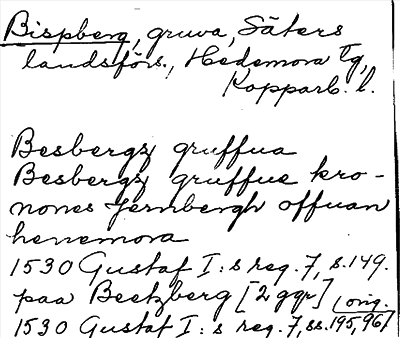 Bispberg, gruva, Säters
landsförs., Hedemora tg,
Kopparb. l.
Besbergz gruffua
Besbergz gruffue kro-
nones Jernbergh offuan
henemora
1530 Gustaf I:s reg. 7, s. 149.
paa Beetzberg [2 ggr] orig.
1530 Gustaf I:s reg. 7, ss. 195, 96/